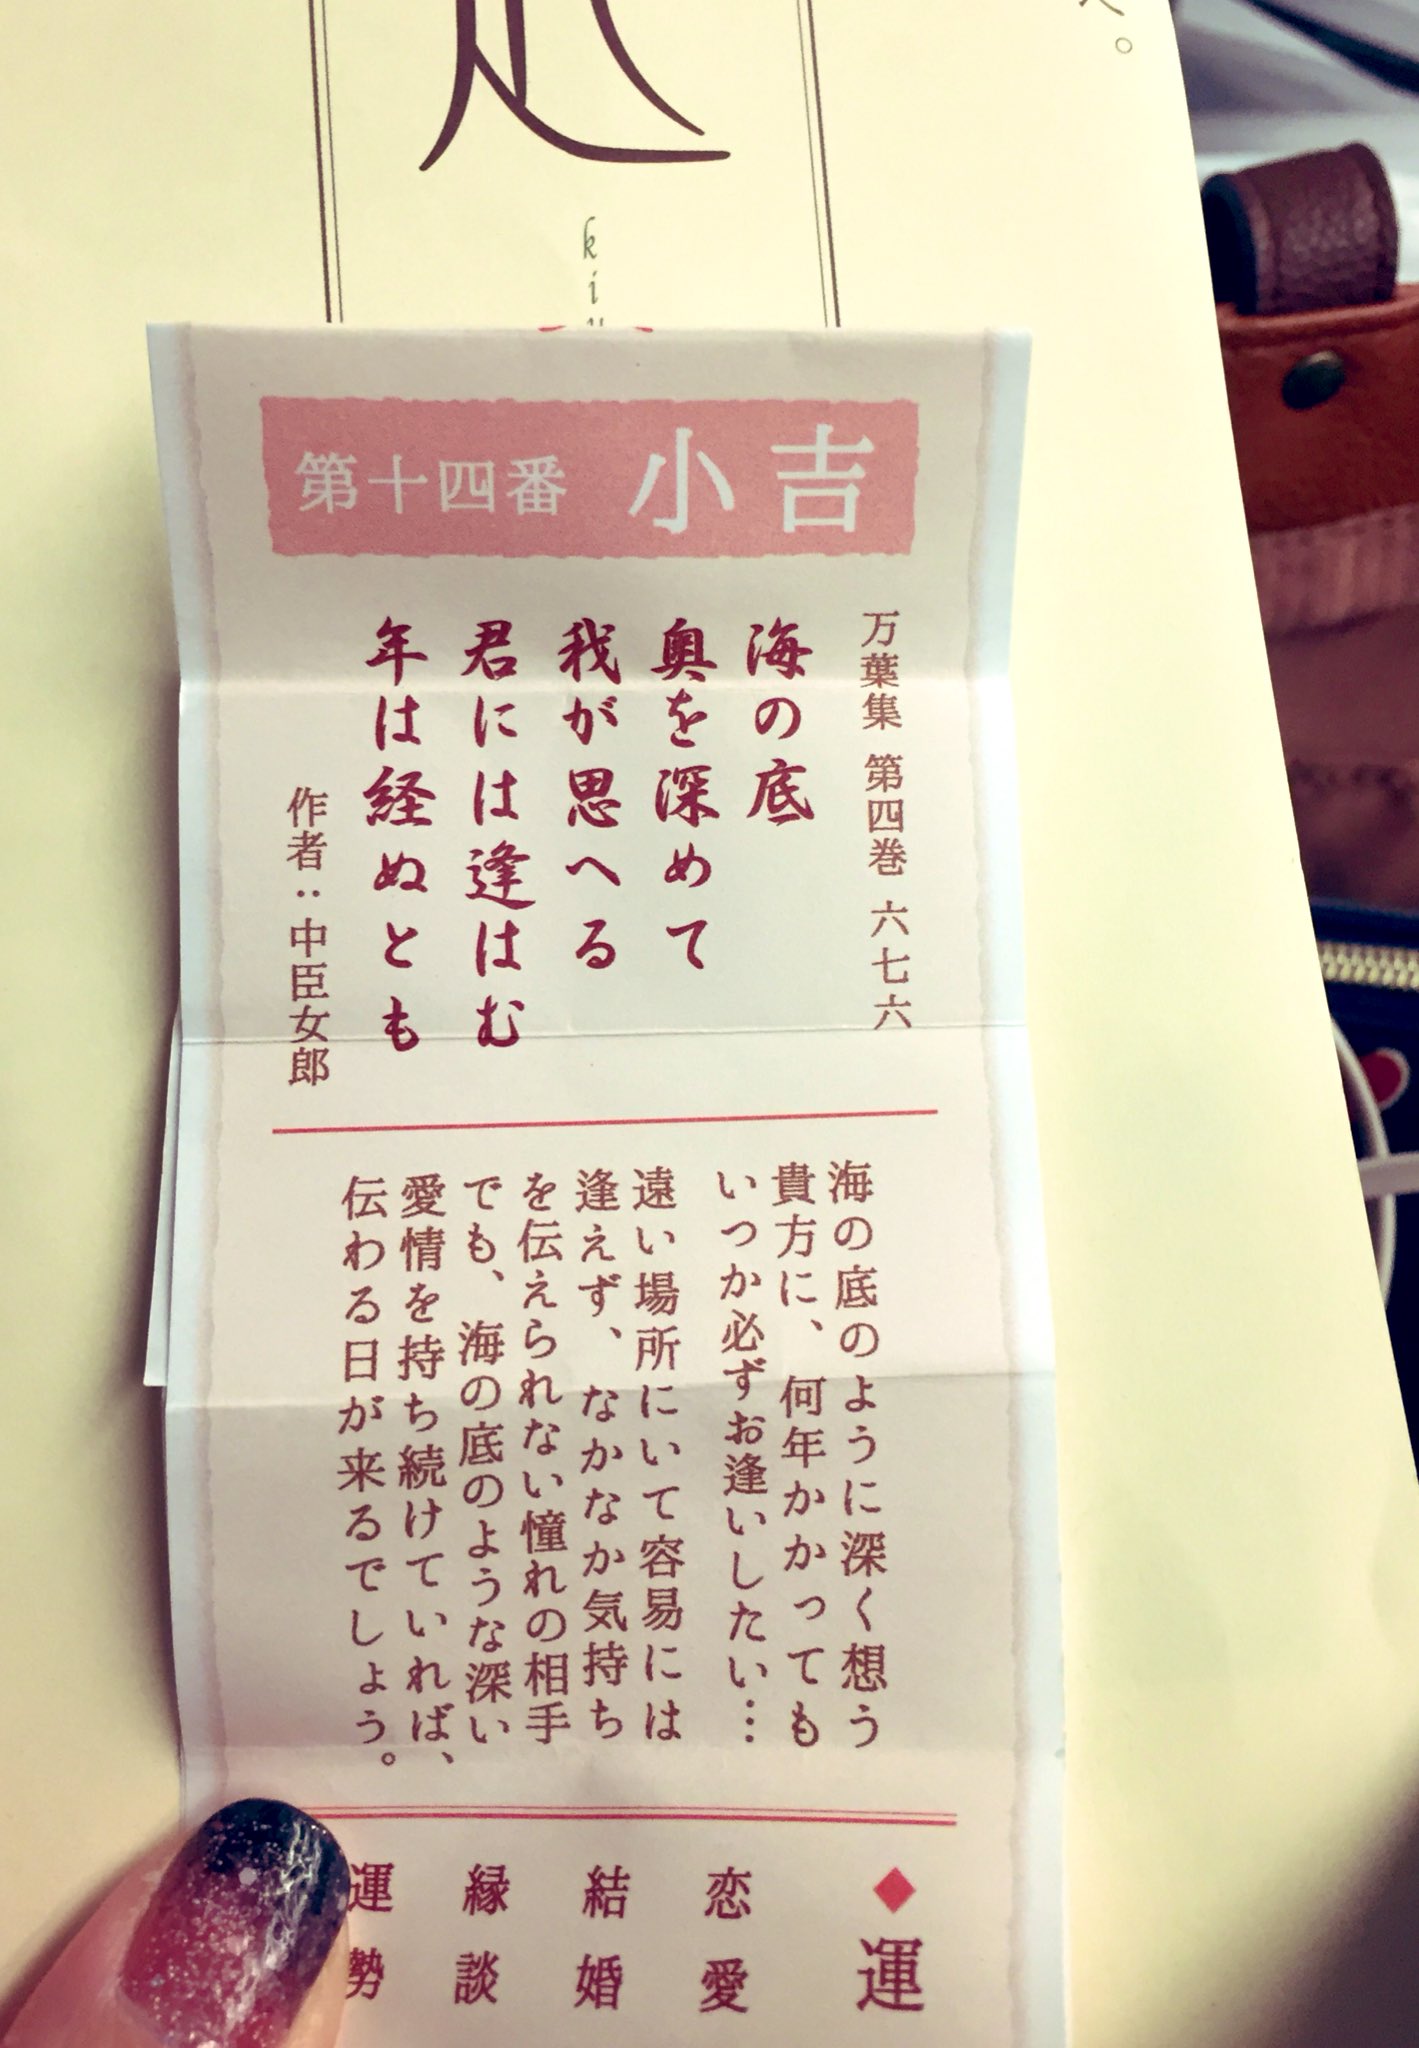 kiu
第十四番 小吉
万葉集 第四巻 六七六
海の底
奥を深めて
我が思へる
君には逢はむ
年は経ぬとも
作者：中臣女郎
海の底のように深く想う
貴方に、何年かかっても
いつか必ずお逢いしたい…
遠い場所にいて容易には
逢えず、なかなか気持ち
を伝えられない憧れの相手
でも、海の底のような深い
愛情を持ち続けていれば、
伝わる日が来るでしょう。
◆運
恋愛
結婚
縁談
運勢